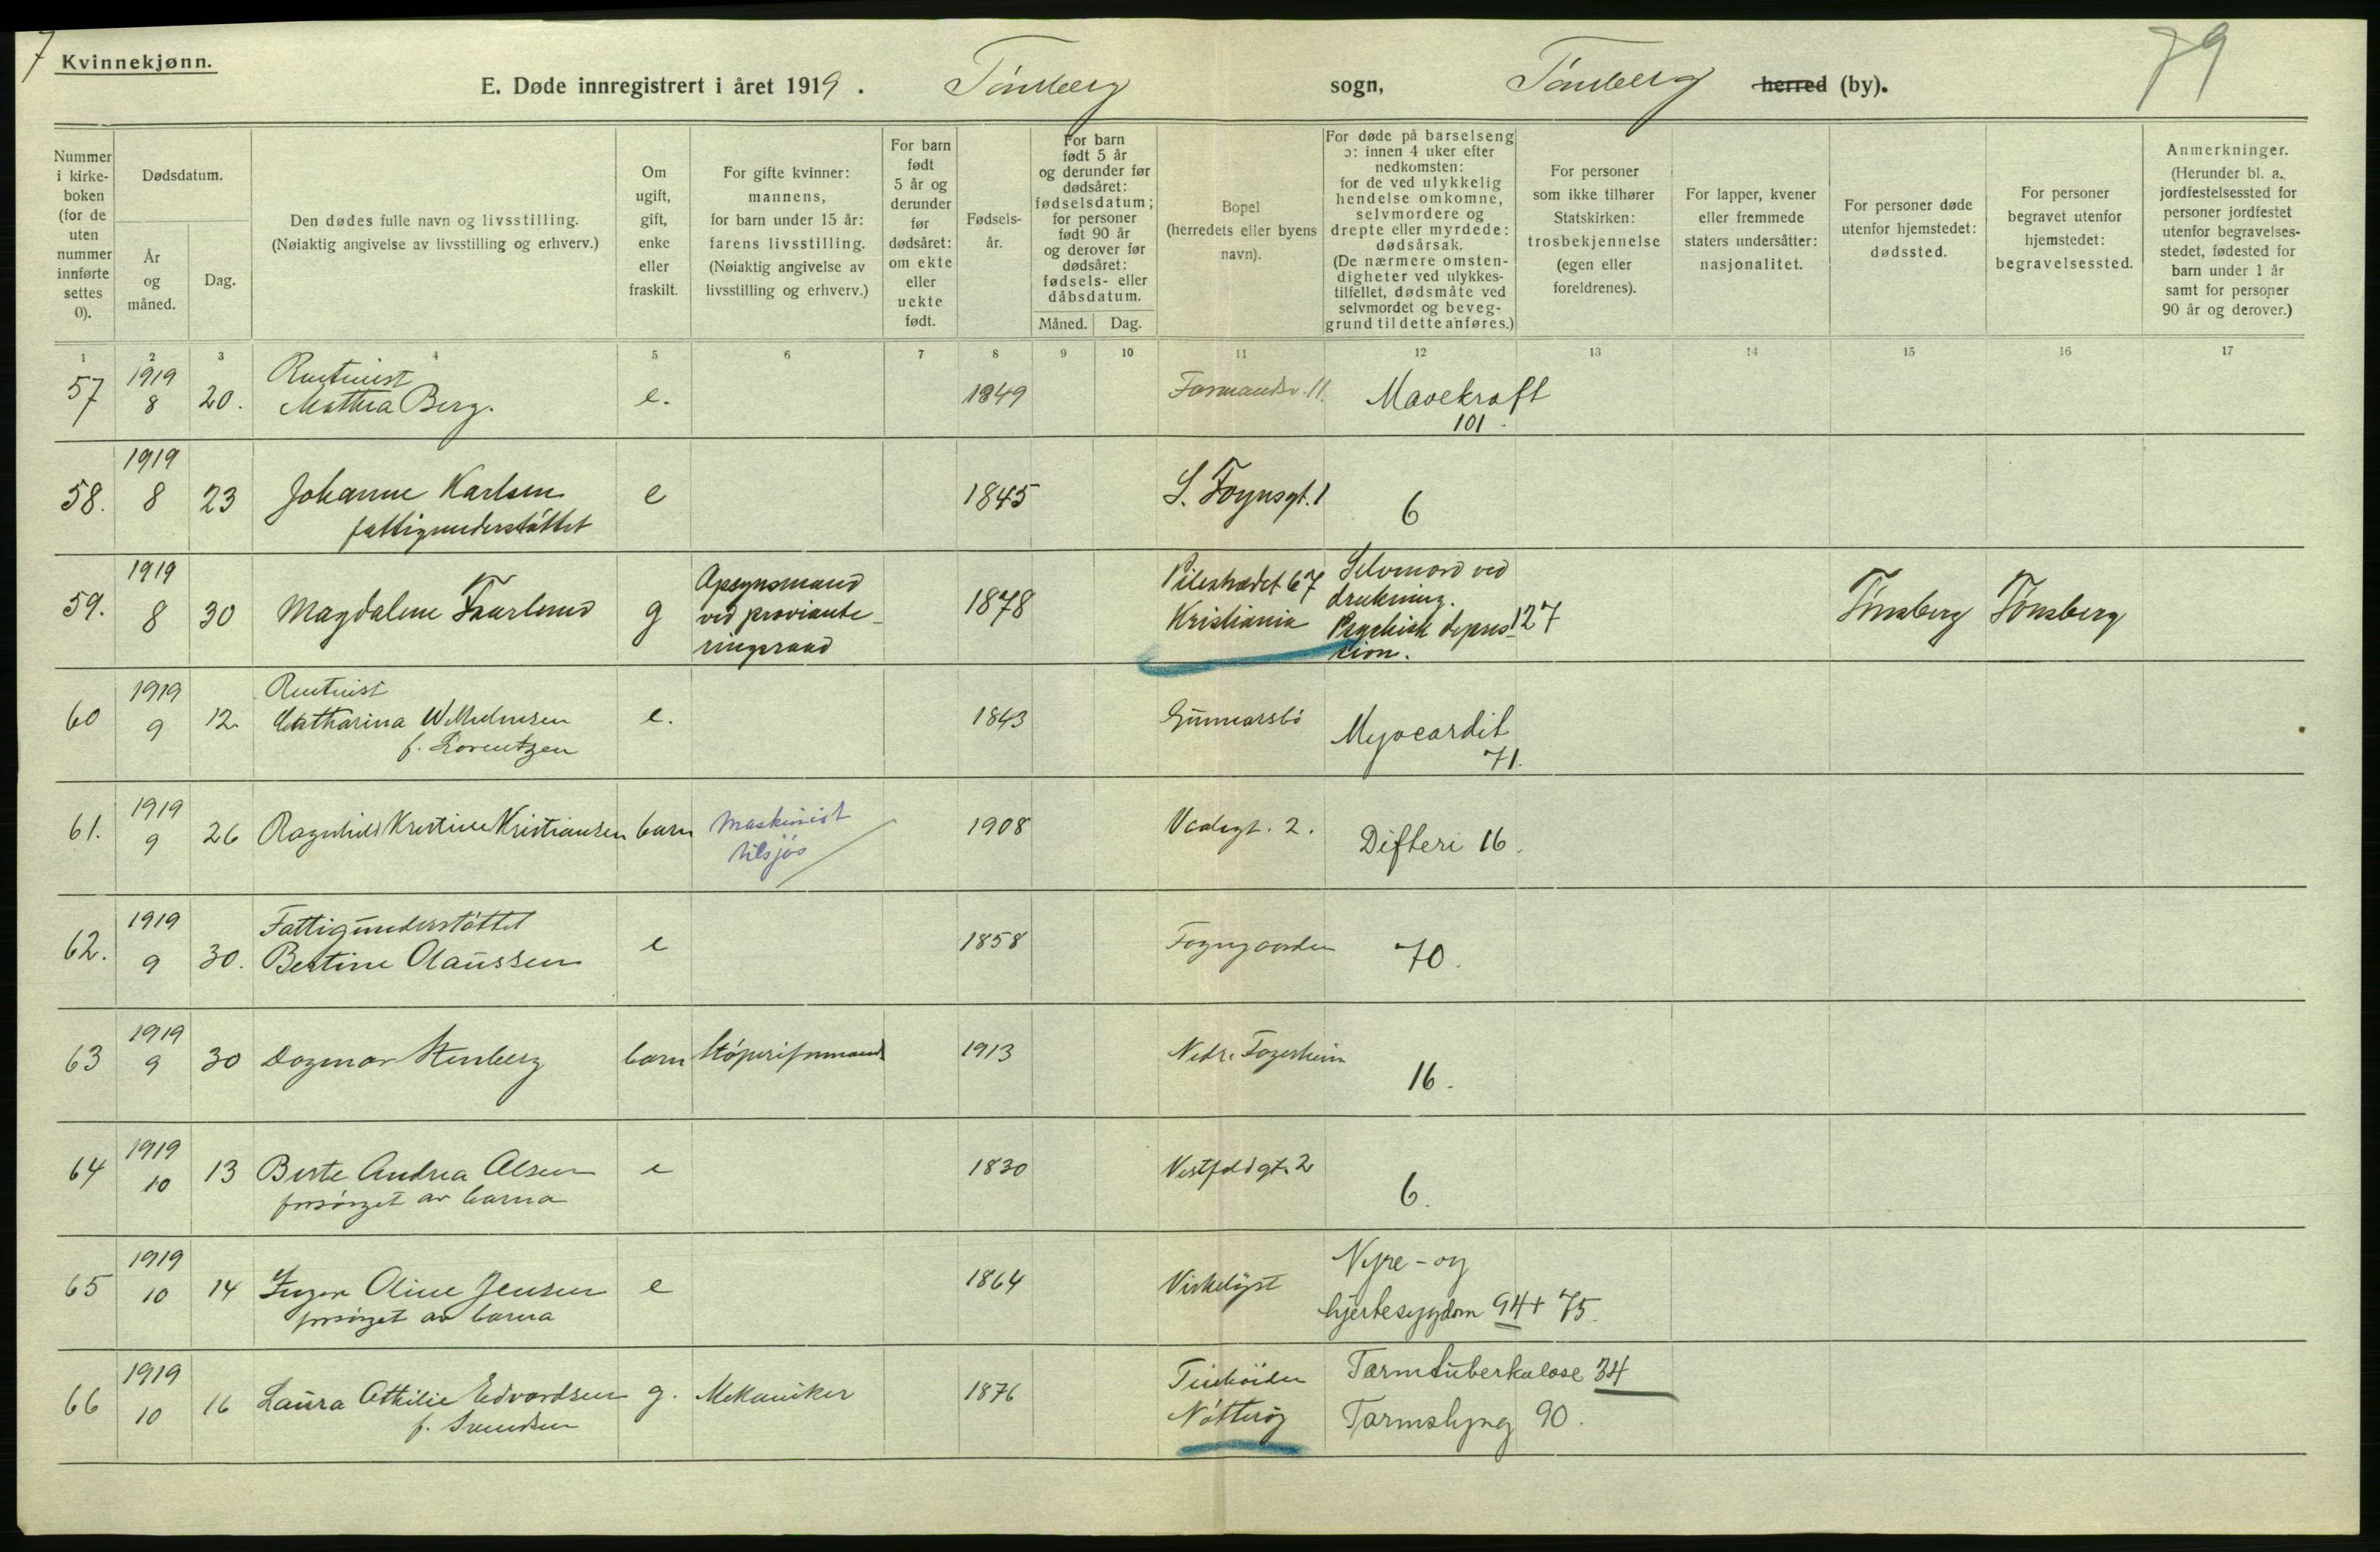 7
Kvinnekjønn.
79
E. Døde innregistrert i året 1919. Tønsberg sogn, Tønsberg herred (by).
Nummer i kirke-boken (for de uten nummer innførte settes 0).
Dødsdatum.
År og måned.
Dag.
Den dødes fulle navn og livsstilling. (Nøiaktig angivelse av livsstilling og erhverv.)
Om ugift, gift, enke eller fraskilt.
For gifte kvinner: mannens, for barn under 15 år: farens livsstilling. (Nøiaktig angivelse av livsstilling og erhverv.)
For barn født 5 år og derunder før dødsåret: om ekte eller uekte født.
Fødsels-år.
For barn født 5 år og derunder før dødsåret: fødselsdatum; for personer født 90 år og derover før dødsåret: fødsels- eller dåbsdatum.
Måned.
Dag.
Bopel (herredets eller byens navn).
For døde på barselseng ɔ: innen 4 uker efter nedkomsten: for de ved ulykkelig hendelse omkomne, selvmordere og drepte eller myrdede: dødsårsak. (De nærmere omsten-digheter ved ulykkes-tilfellet, dødsmåte ved selvmordet og beveg-grund til dette anføres.)
For personer som ikke tilhører Statskirken: trosbekjennelse (egen eller foreldrenes).
For lapper, kvener eller fremmede staters undersåtter: nasjonalitet.
For personer døde utenfor hjemstedet: dødssted.
For personer begravet utenfor hjemstedet: begravelsessted.
Anmerkninger. (Herunder bl. a. jordfestelsessted for personer jordfestet utenfor begravelses-stedet, fødested for barn under 1 år samt for personer 90 år og derover.)
1 2 3 4 5 6 7 8 9 10 11 12 13 14 15 16 17
57 1919 8 20. Rentenist Mathea Berg. e. 1849 Farmandsv. 11. Mavekraft 101.
58. 1919 8 23 Johanne Karlsen fattigunderstøttet e 1845 S. Foynsgt. 1 6
59. 1919 8 30 Magdalene Faarlund g Opsynsmand ved proviante-ringsraad 1878 Pilestrædet 67 Kristiania Selvmord ved drukning. Psychisk depres-sion. 127 Tønsberg Tønsberg
60 1919 9 12. Rentenist Catharina Wilhelmsen f. Lorentzen e. 1843 Gunnarsbø Myocardit 71.
61. 1919 9 26 Ragnhild Kristine Kristiansen barn Maskinist tilsjøs 1908 Vadegt. 2. Difteri 16.
62. 1919 9 30. Fattigunderstøttet Bertine Olaussen e 1858 Foyngaarden 70.
63 1919 9 30 Dagmar Stenberg barn 1913 Nedr. Fagerheim 16.
64 1919 10 13 Berte Andrea Olsen forsørget av barna e 1830 Vestfoldgt. 2 6.
65 1919 10 14 Inger Oline Jensen forsørget av barna e 1864 Virkelyst Nyre- og hjertesygdom 94 + 75.
66 1919 10 16 Laura Othilie Edvardsen f. Svendsen g. Mekaniker 1876 Nøtterøy Tarmtuberkulose 34 Tarmslyng 90.